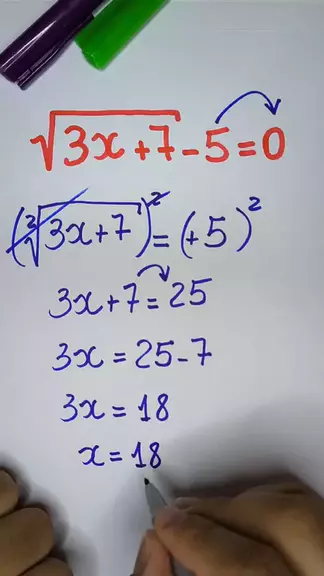 √3x+7 - 5 = 0
(²√3x+7)² = (+5)²
3x+7 = 25
3x = 25-7
3x = 18
x = 18